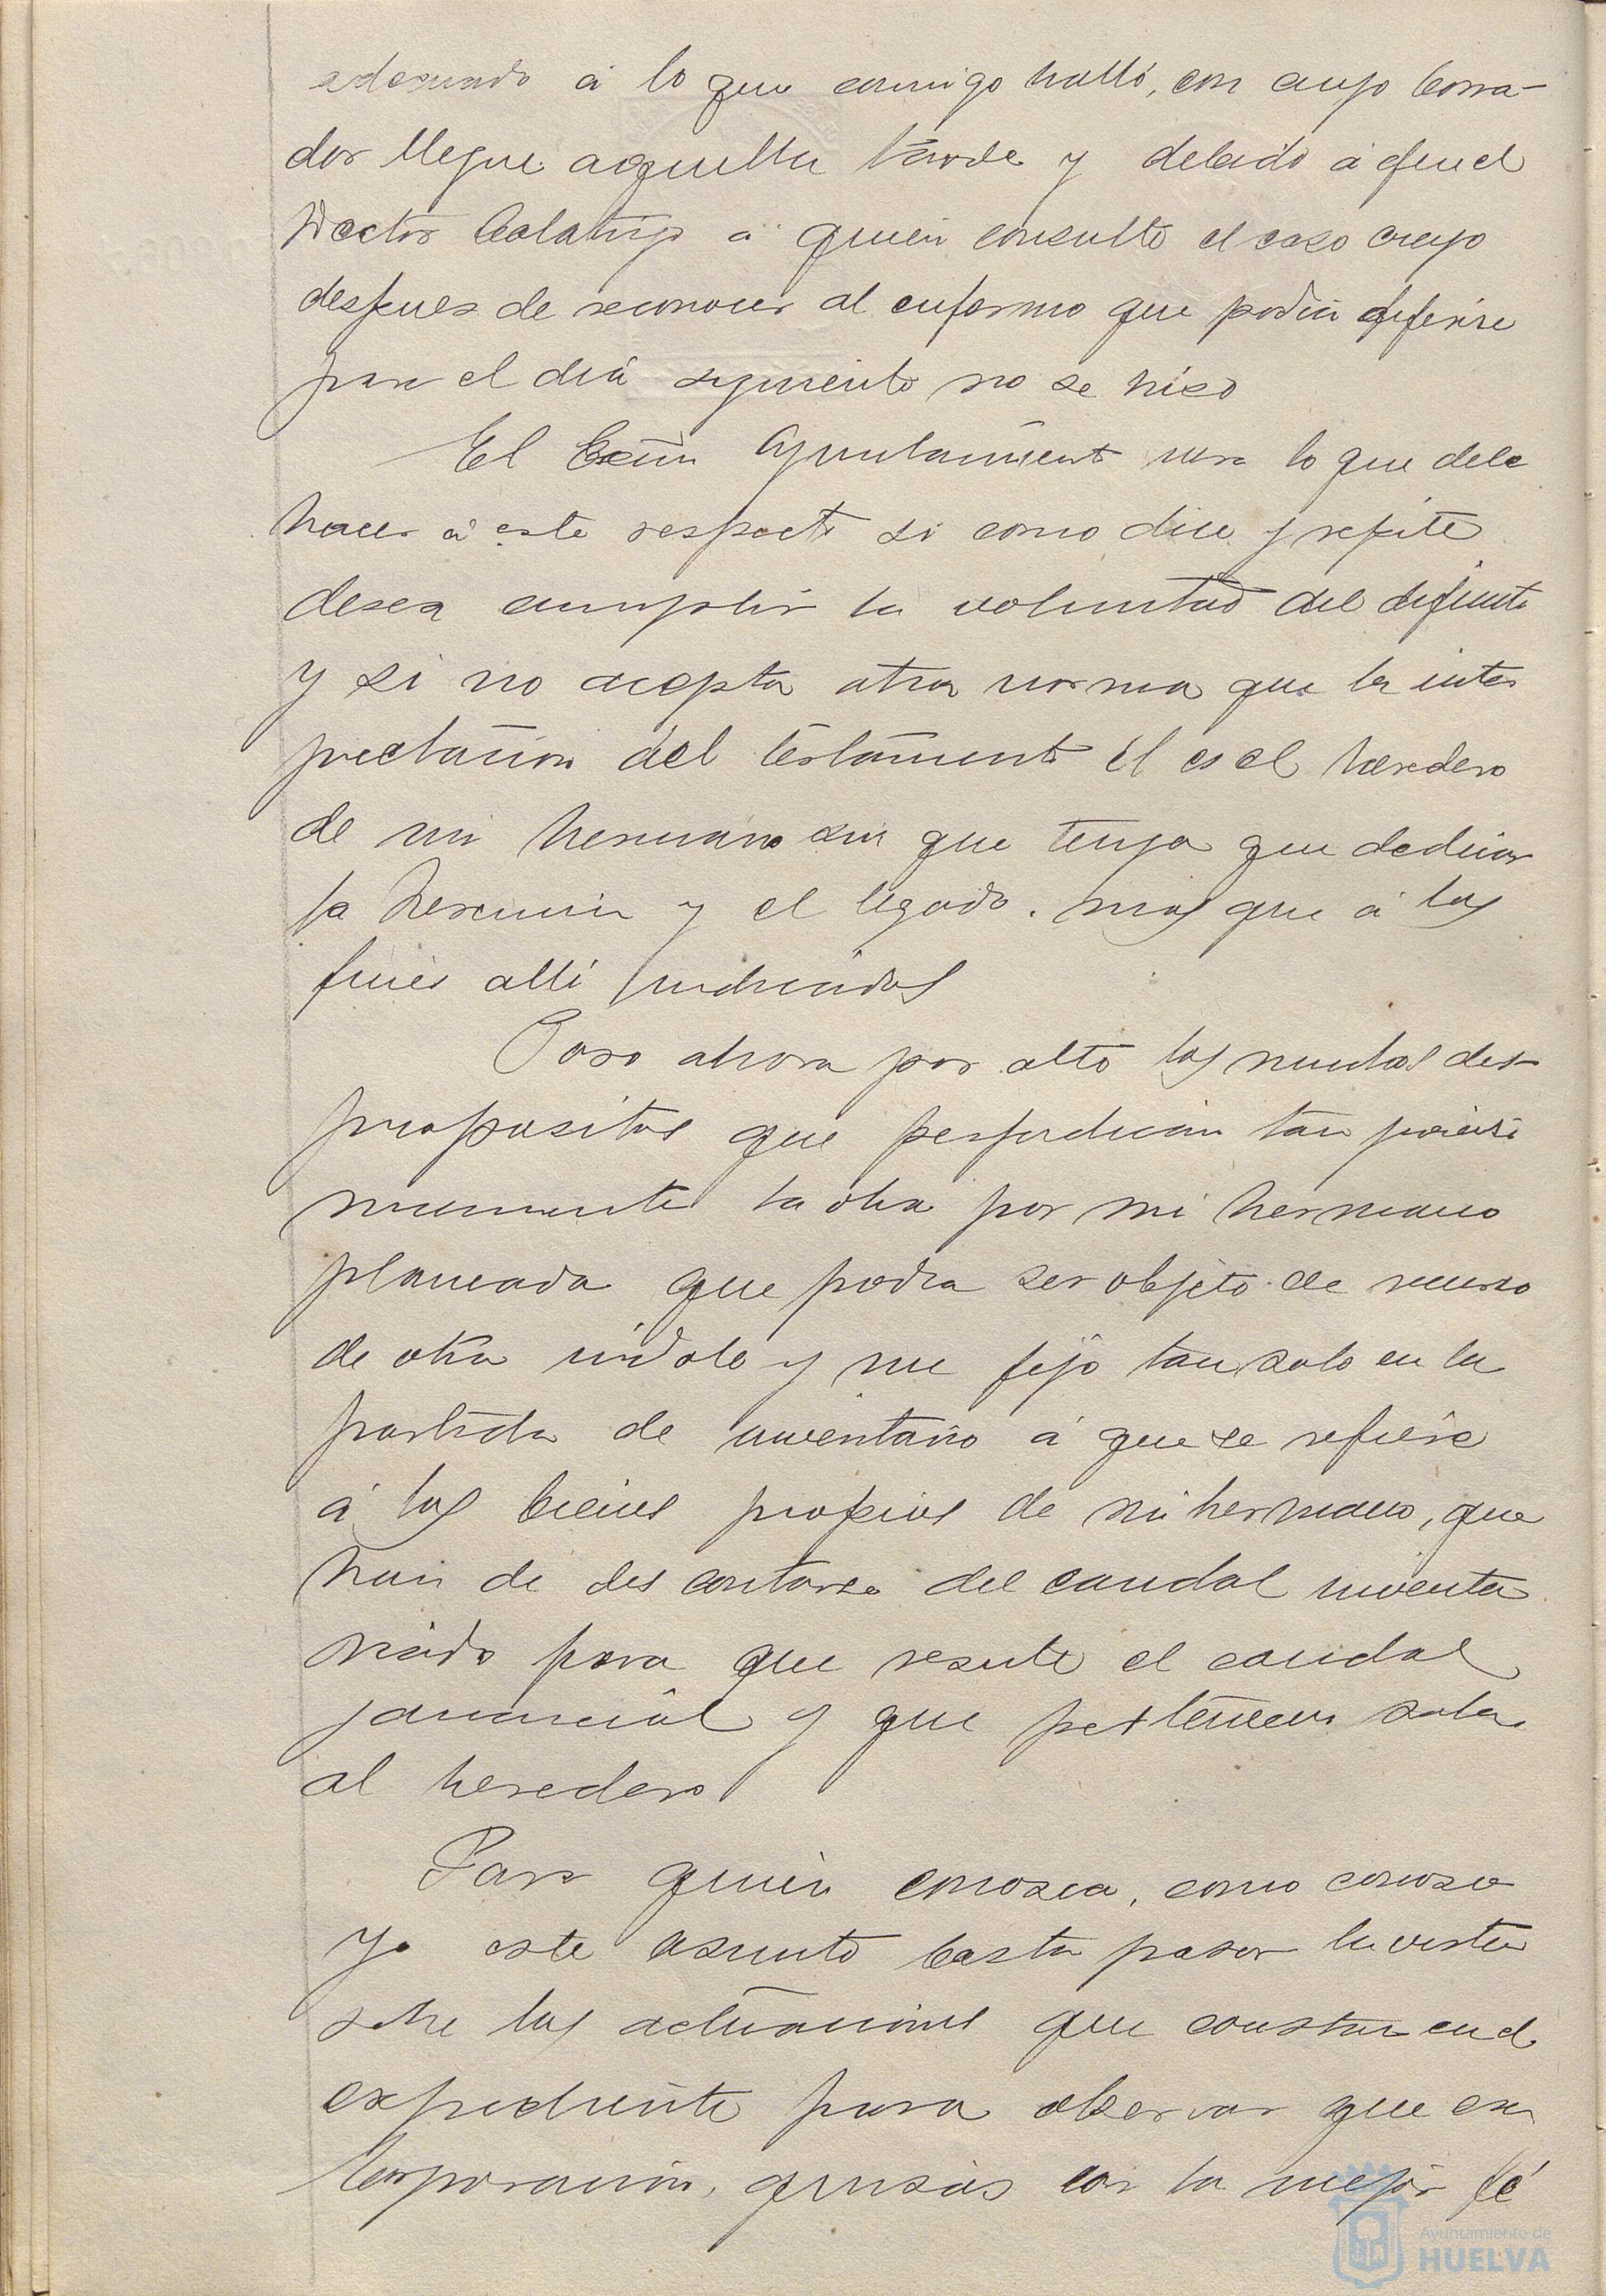 adecuado á lo que conmigo halló, con cuyo borra-
dor llegue aquella tarde y debido á que el
Doctor á quien consultó el caso creyo
despues de reconocer al enfermo que podia diferirse
para el dia siguiente no se hizo
El Excmo Ayuntamiento vera lo que debe
hacer á este respecto si como dice y repite
desea cumplir la voluntad del difunto
y si no acepta otra norma que la inter
pretacion del testamento él es el heredero
de mi hermano sin que tenga que dedicar
la herencia y el legado mas que á los
fines alli indicados
Paso ahora por alto los muchos des-
propositos que perjudican tan
la obra por mi hermano
planeada que podra ser objeto de recurso
de otra indole y me fijo tan solo en la
partida de inventario á que se refiere
á los bienes propios de mi hermano, que
han de descontarse del caudal inventa
riado para que resulte el caudal
ganancial y que pertenecen solo
al heredero
Para quien conozca, como conozco
yo este asunto basta pasar la vista
sobre las actuaciones que constan en el
expediente para observar que esa
Corporación, quizás con la mejor fé
Ayuntamiento de
HUELVA